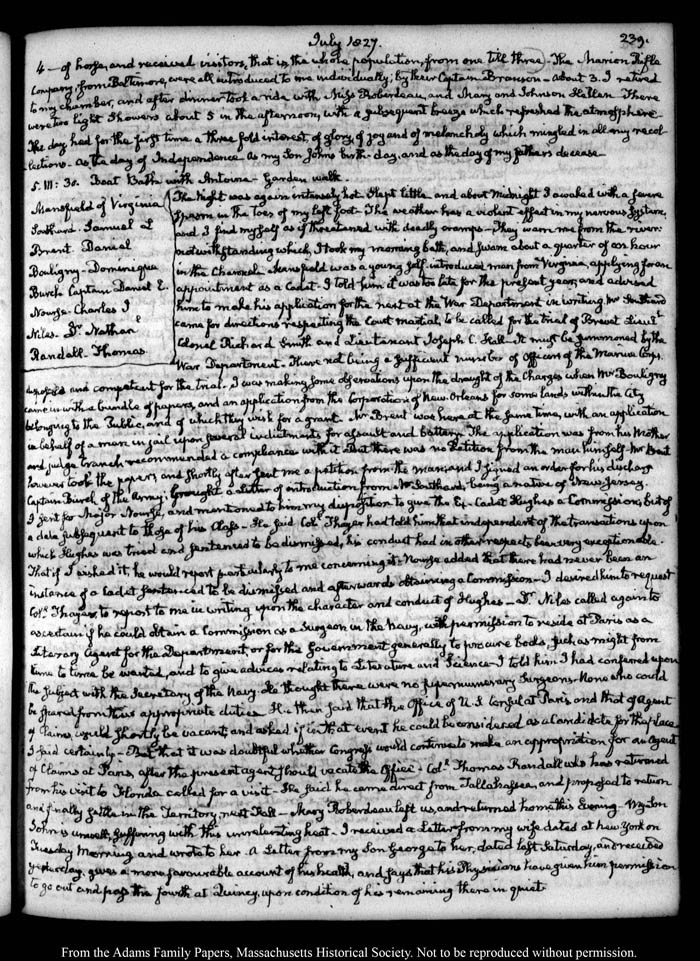 July 1827.
239.
4 — of horse, and received visitors, that is the whole population, from one till three — The Marion Rifle
Company, from Baltimore, were all introduced to me individually, by their Captain Branson — about 3. I retired
to my chamber, and after dinner took a ride with Miss Roberdeau and Mary and Johnson Hellen. There
were two light Showers about 5 in the afternoon, with a subsequent breeze which refreshed the atmosphere —
The day had for the first time a three fold interest, of glory, of joy and of melancholy which mingled in all my recol-
lections — As the day of Independence — as my Son John's birth-day, and as the day of my father's decease —
5. III: 30. Boat Bath with Antoine — Garden walk —
Mansfield of Virginia
Southard Samuel L
Brent. Daniel
Bouligny - Dominique
Burch Captain Daniel E.
Nourse Charles J
Niles. Dr. Nathanl
Randall Thomas
The Night was again intensely hot. Slept little and about Midnight I awaked with a severe
Spasm in the toes of my left foot — The weather has a violent effect on my nervous System,
and I find myself as if threatened with deadly cramps — They warn me from the river:
notwithstanding which, I took my morning bath, and swam about a quarter of an hour
in the Channel. Mansfield was a young self-introduced man from Virginia, applying for an
appointment as a Cadet - I told him it was too late for the present year, and advised
him to make his application for the next at the War Department in writing. Mr Southard
came for directions respecting the Court martial, to be called for the trial of Brevet Lieutt
Colonel Richard Smith and Lieutenant Joseph C. Hall — It must be summoned by the
War Department — There not being a sufficient number of Officers of the Marine Corps,
disposable and competent for the trial. I was making some observations upon the draught of the Charges when Mr Bouligny
came in with a bundle of papers, and an application from the Corporation of New Orleans for some lands within the City
belonging to the Public, and of which they wish for a grant. Mr Brent was here at the same time, with an application
in behalf of a man in jail upon several indictments for assault and battery. The application was from his Mother
and judge Cranch recommended a compliance with it. But there was no Petition from the man himself. Mr Brent
however took the papers and shortly after sent me a petition from the man, and I signed an order for his discharge
Captain Burch of the Army, brought a Letter of introduction from Mr Southard, being a native of New Jersey.
I sent for Major Nourse, and mentioned to him my disposition to give the Ex-Cadet Hughes a Commission, but of
a date subsequent to those of his Class — He said Coll Thayer had told him that independent of the transactions upon
which Hughes was tried and sentenced to be dismissed, his conduct had in other respects been very exceptionable.
That if I wished it he would report particularly to me concerning it — Nourse added that there had never been an
instance of a Cadet sentenced to be dismissed and afterwards obtaining a Commission — I desired him to request
Coll Thayer, to report to me in writing upon the character and conduct of Hughes — Dr Niles called again to
ascertain if he could obtain a Commission as a Surgeon in the Navy, with permission to reside at Paris as a
Literary Agent for the Department, or for the Government generally to procure books, such as might from
time to time be wanted, and to give advices relating to Literature and Science — I told him I had conferred upon
the subject with the Secretary of the Navy. He thought there were no supernumerary Surgeons. None who could
be spared from their appropriate duties. He then said that the Office of U.S. Consul at Paris, and that of Agent
of Claims, would shortly be vacant, and asked if in that event he could be considered as a Candidate for that place
I said certainly — But that it was doubtful whether Congress would continue to make an appropriation for an Agent
of Claims at Paris, after the present agent should vacate the Office. Coll Thomas Randall who has returned
from his visit to Florida called for a visit — He said he came direct from Tallahassee, and proposed to return
and finally settle in the Territory, next Fall — Mary Roberdeau left us, and returned home this Evening. My Son
John is unwell, suffering with this unrelenting heat — I received a Letter from my wife dated at New York on
Tuesday Morning and wrote to her. A Letter from my Son George to her, dated last Saturday, and received
yesterday, gives a more favourable account of his health, and says that his Physicians have given him permission
to go out and pass the fourth at Quincy, upon condition of his remaining there in quiet
From the Adams Family Papers, Massachusetts Historical Society. Not to be reproduced without permission.